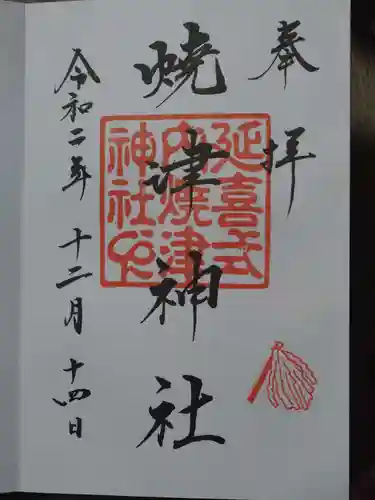 奉拝
焼津神社
延喜式
内焼津
神社印
令和二年 十二月 十四日